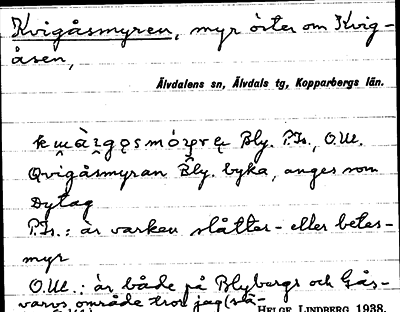 Kvigåsmyren, myr öster om Kvig-
åsen,
Älvdalens sn, Älvdals tg, Kopparbergs län.
Bly. P.Is., O.Ul.
Qvigåsmyran Bly. byka, anges som
Dytag
P.Is.: är varken slåtter- eller betes-
myr
O.Ul.: är både på Blybergs och Gås-
varvs område tror jag (slå-
HELGE LINDBERG 1938.